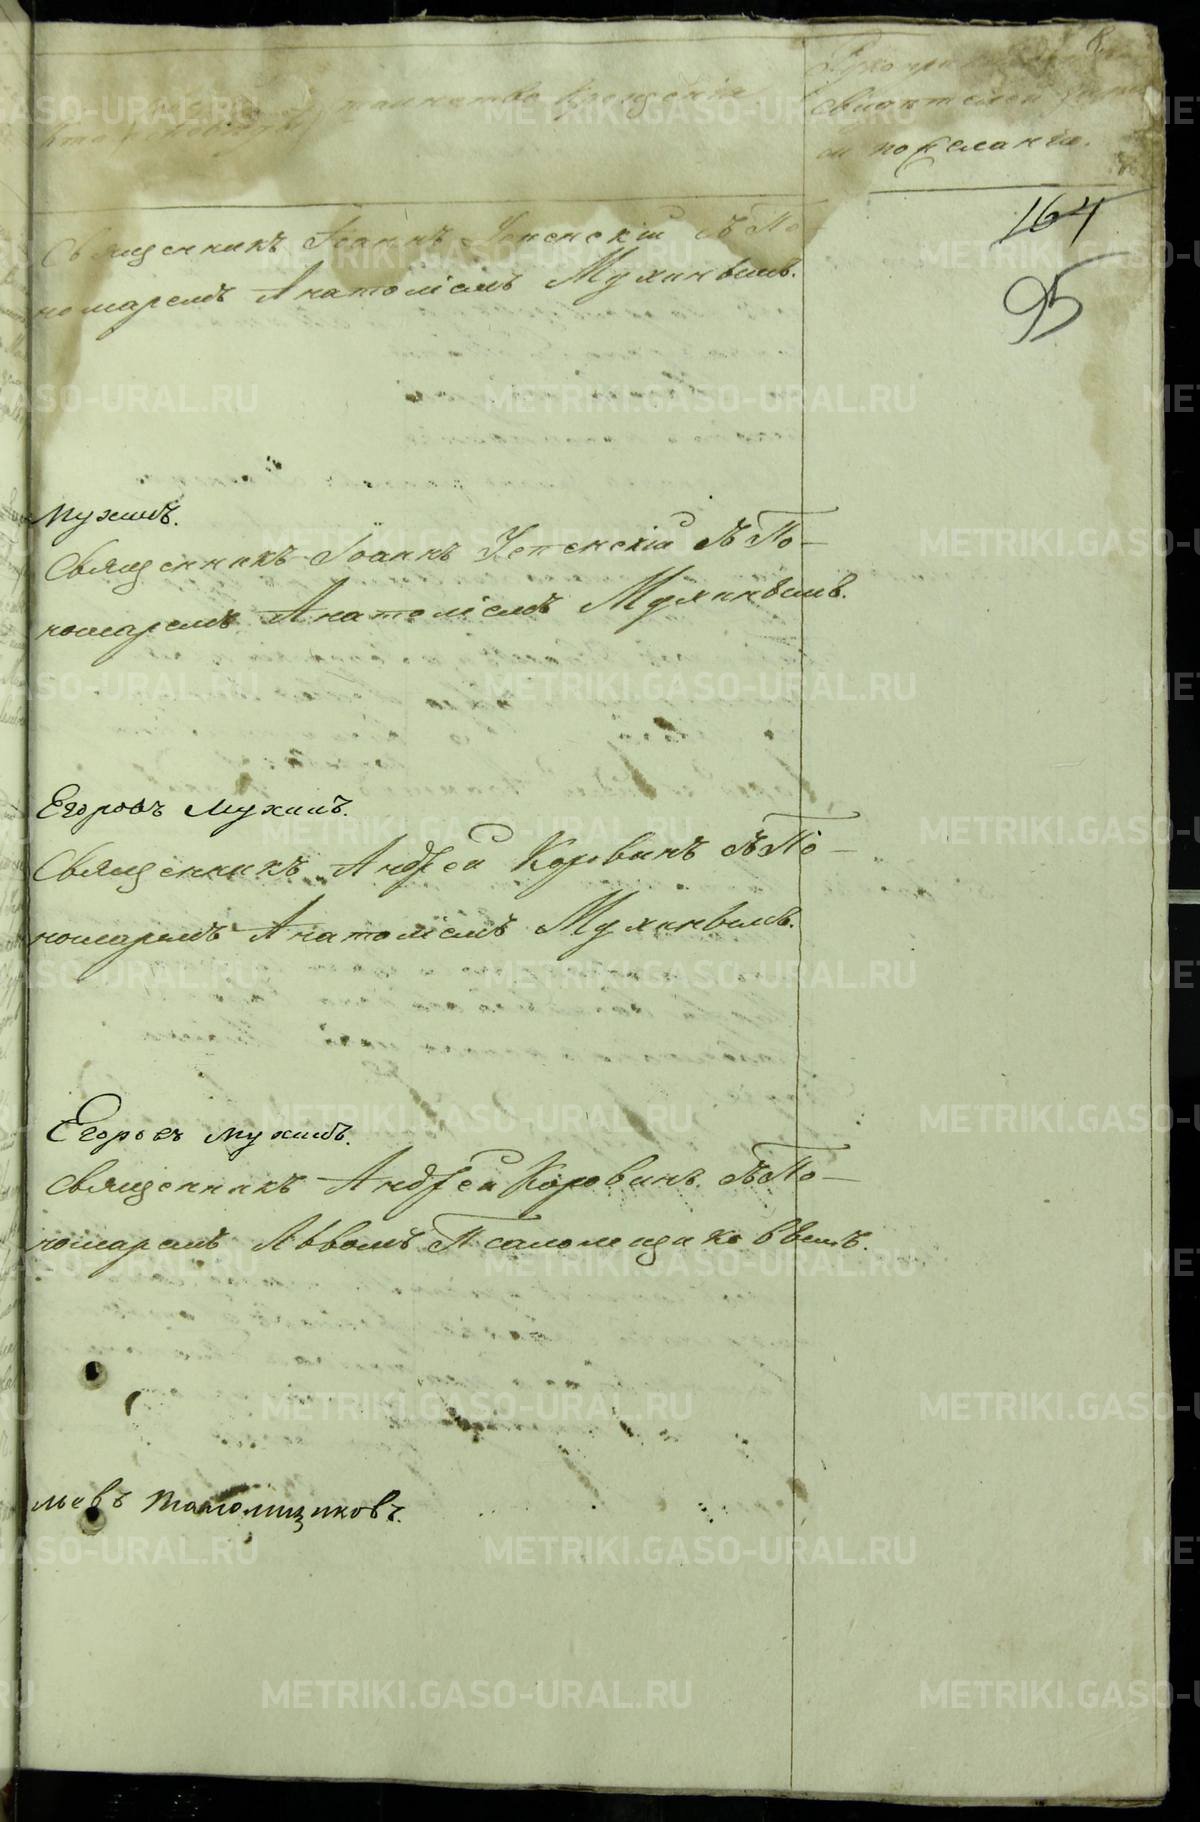 Кто совершалъ таинство крещенія
Рукоприкладство
свидѣтелей записи
по желанію.
164
95
Священникъ Іоаннъ Успенскій съ По-
номаремъ Анатоліемъ Мухинымъ.
Мухинъ.
Священникъ Іоаннъ Успенскій съ По-
номаремъ Анатоліемъ Мухинымъ.
Егоровъ Мухинъ.
Священникъ Андрей Коровинъ съ По-
номаремъ Анатоліемъ Мухинымъ.
Егоровъ Мухинъ.
Священникъ Андрей Коровинъ съ По-
номаремъ Львомъ Псаломщиковымъ.
льевъ Псаломщиковъ.
METRIKI.GASO-URAL.RU